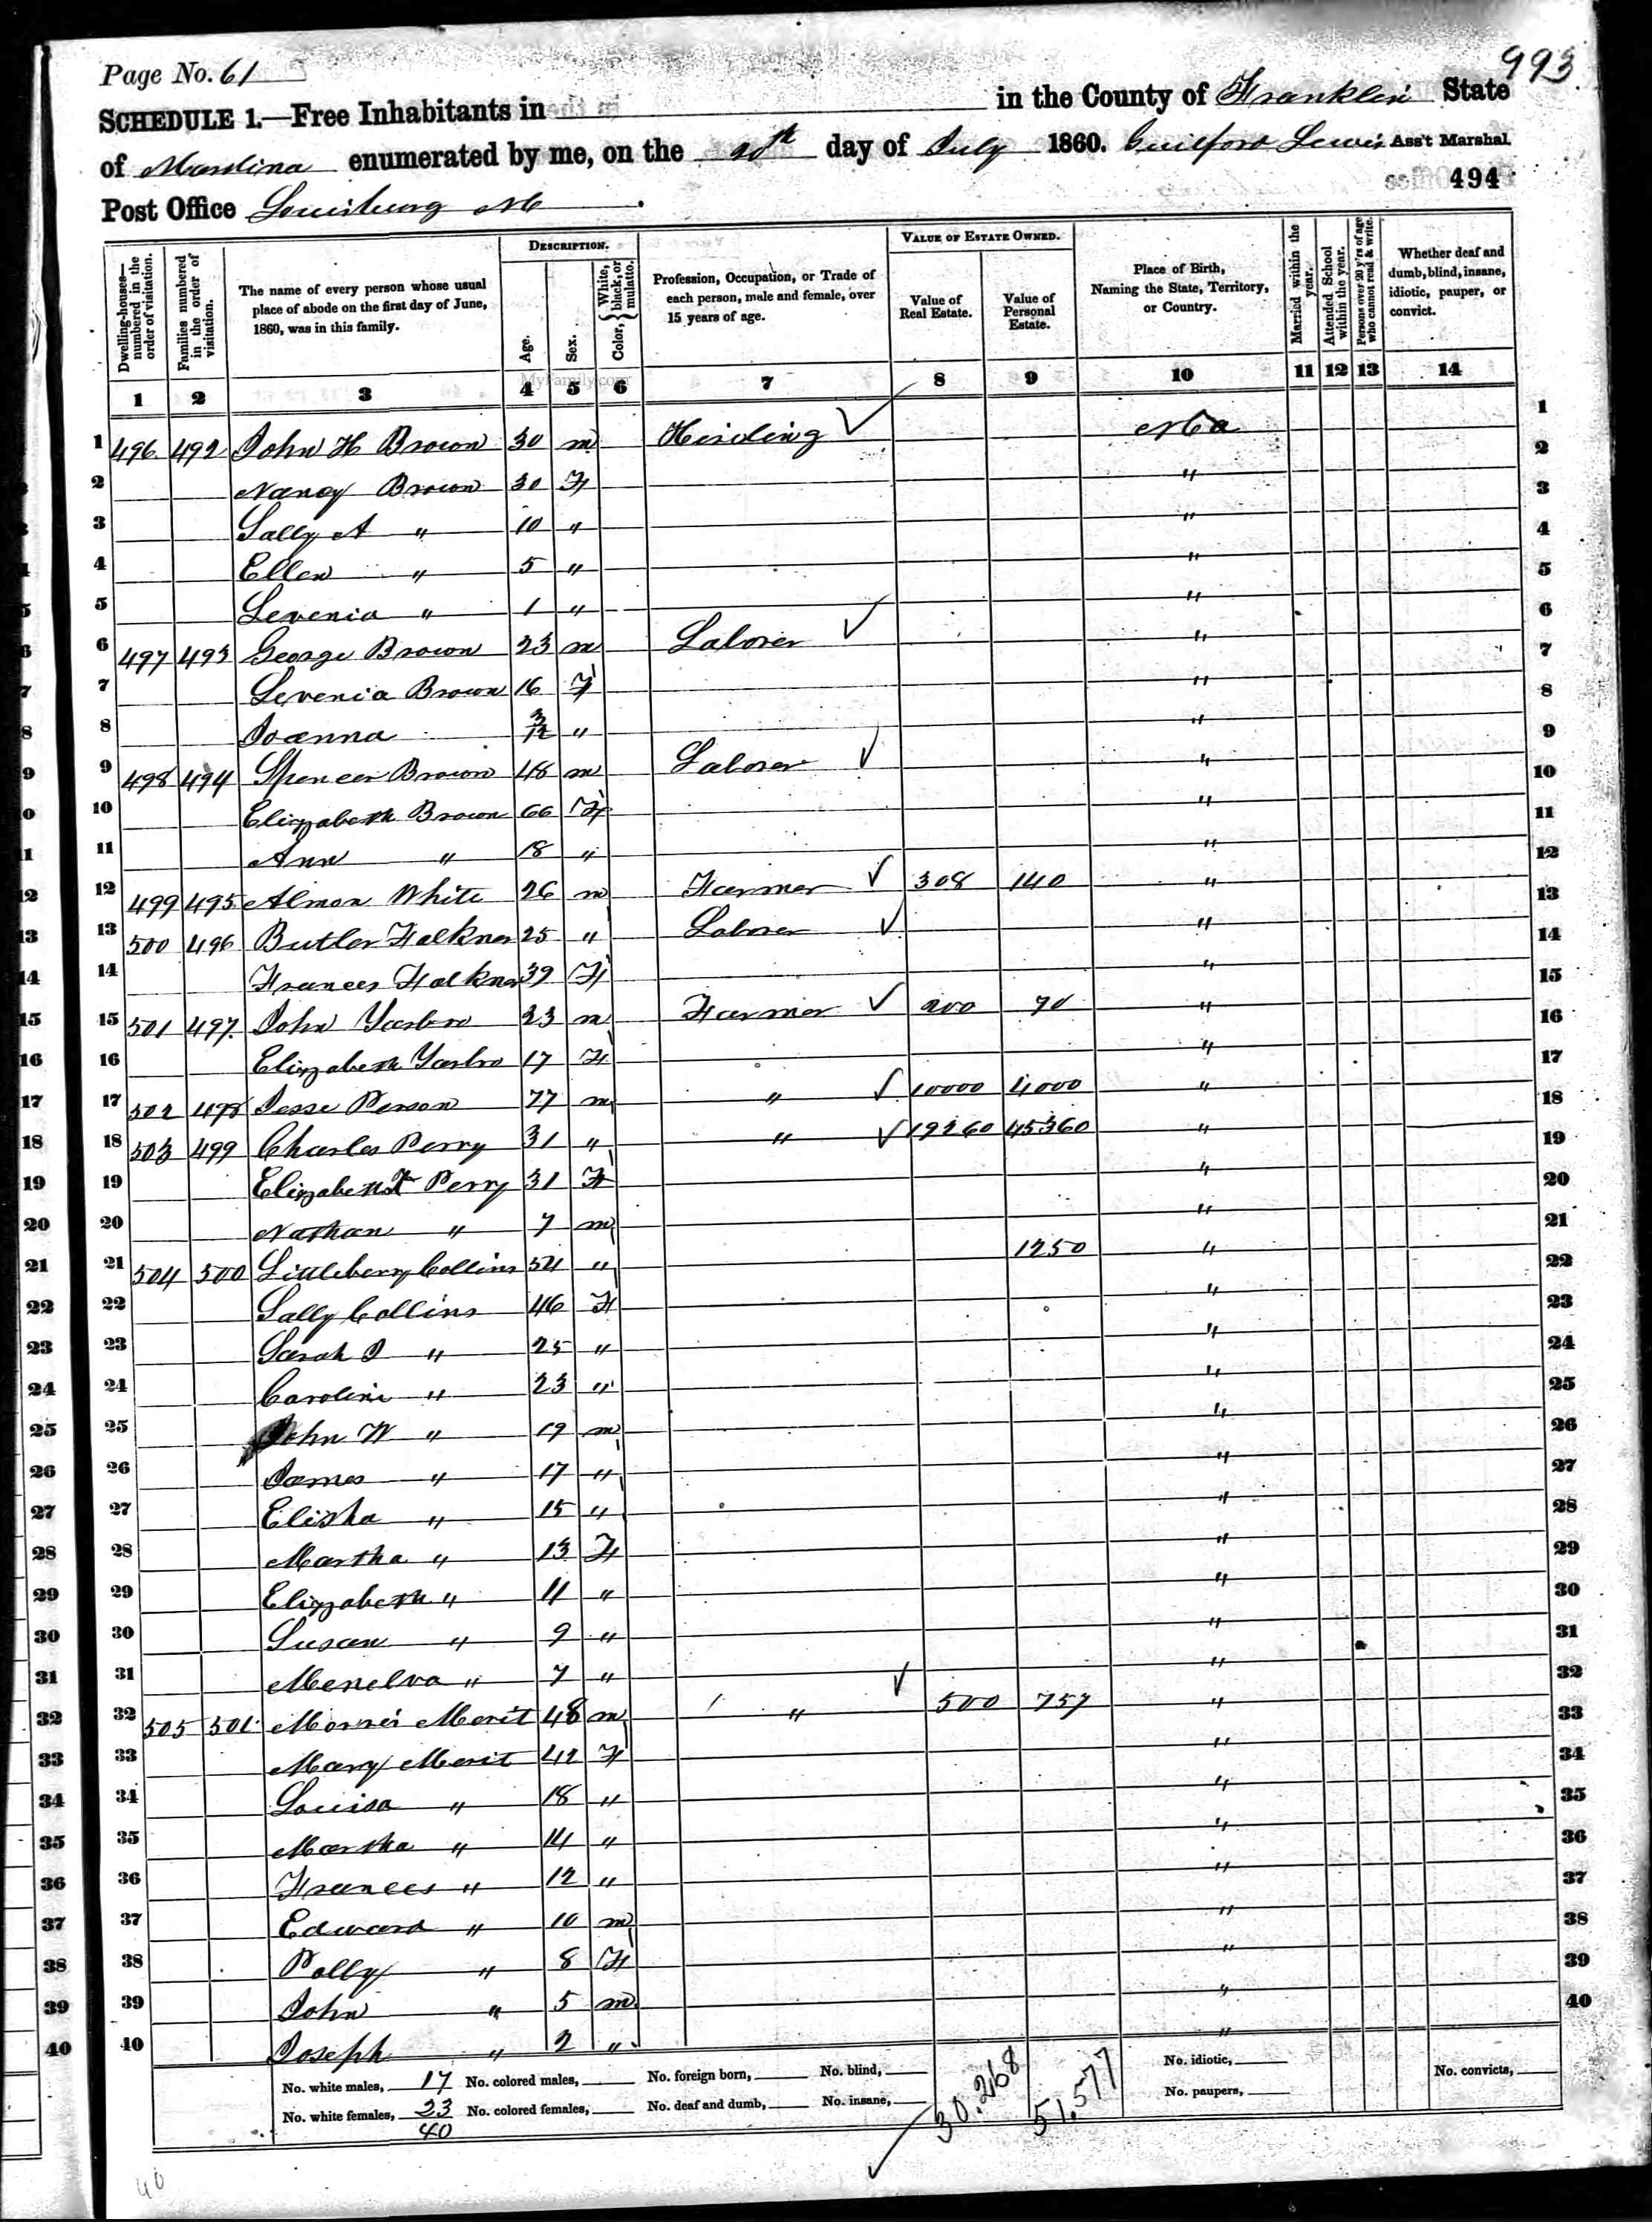 993
Page No. 61
SCHEDULE 1.—Free Inhabitants in in the County of Franklin State
of N Carolina enumerated by me, on the 20th day of July 1860. Guilford Lewis Ass't Marshal.
494
Post Office Louisburg NC
Dwelling-houses—numbered in the order of visitation.
Families numbered in the order of visitation.
The name of every person whose usual place of abode on the first day of June, 1860, was in this family.
DESCRIPTION.
Age.
Sex.
Color, {White, black, or mulatto.
Profession, Occupation, or Trade of each person, male and female, over 15 years of age.
VALUE OF ESTATE OWNED.
Value of Real Estate.
Value of Personal Estate.
Place of Birth, Naming the State, Territory, or Country.
Married within the year.
Attended School within the year.
Persons over 20 y'rs of age who cannot read & write.
Whether deaf and dumb, blind, insane, idiotic, pauper, or convict.
MyFamily.com
1 2 3 4 5 6 7 8 9 10 11 12 13 14
1 496 492 John H Brown 30 m Hireling NCa 1
2 Nancy Brown 30 F " 2
3 Sally A " 10 " " 3
4 Ellen " 5 " " 4
5 Levenia " 1 " " 5
6 497 493 George Brown 23 m Laborer " 6
7 Levenia Brown 16 F " 7
8 Joanna 3/12 " " 8
9 498 494 Spencer Brown 48 m Laborer " 9
10 Elizzabeth Brown 66 F " 10
11 Ann " 18 " " 11
12 499 495 Almon White 26 m Farmer 308 140 " 12
13 500 496 Butler Falkner 25 " Laborer " 13
14 Frances Falkner 39 F " 14
15 501 497 John Yarbro 23 m Farmer 200 70 " 15
16 Elizzabeth Yarbro 17 F " 16
17 502 498 Jesse Person 77 m " 10000 4000 " 17
18 503 499 Charles Perry 31 " " 19260 45360 " 18
19 Elizzabeth F Perry 31 F " 19
20 Nathan " 7 m " 20
21 504 500 Littleberry Collins 54 " 1250 " 21
22 Sally Collins 46 F " 22
23 Sarah J " 25 " " 23
24 Caroline " 23 " " 24
25 John W " 19 m " 25
26 James " 17 " " 26
27 Elisha " 15 " " 27
28 Martha " 13 F " 28
29 Elizzabeth " 11 " " 29
30 Susan " 9 " " 30
31 Menelva " 7 " " 31
32 505 501 Morris Merit 48 m " 500 757 " 32
33 Mary Merit 42 F " 33
34 Louisa " 18 " " 34
35 Martha " 14 " " 35
36 Frances " 12 " " 36
37 Edward " 10 m " 37
38 Polly " 8 F " 38
39 John " 5 m " 39
40 Joseph " 2 " " 40
No. white males, 17 No. colored males, No. foreign born, No. blind, 30.268 51.577 No. idiotic, No. convicts,
No. white females, 23 No. colored females, No. deaf and dumb, No. insane, No. paupers,
40
40